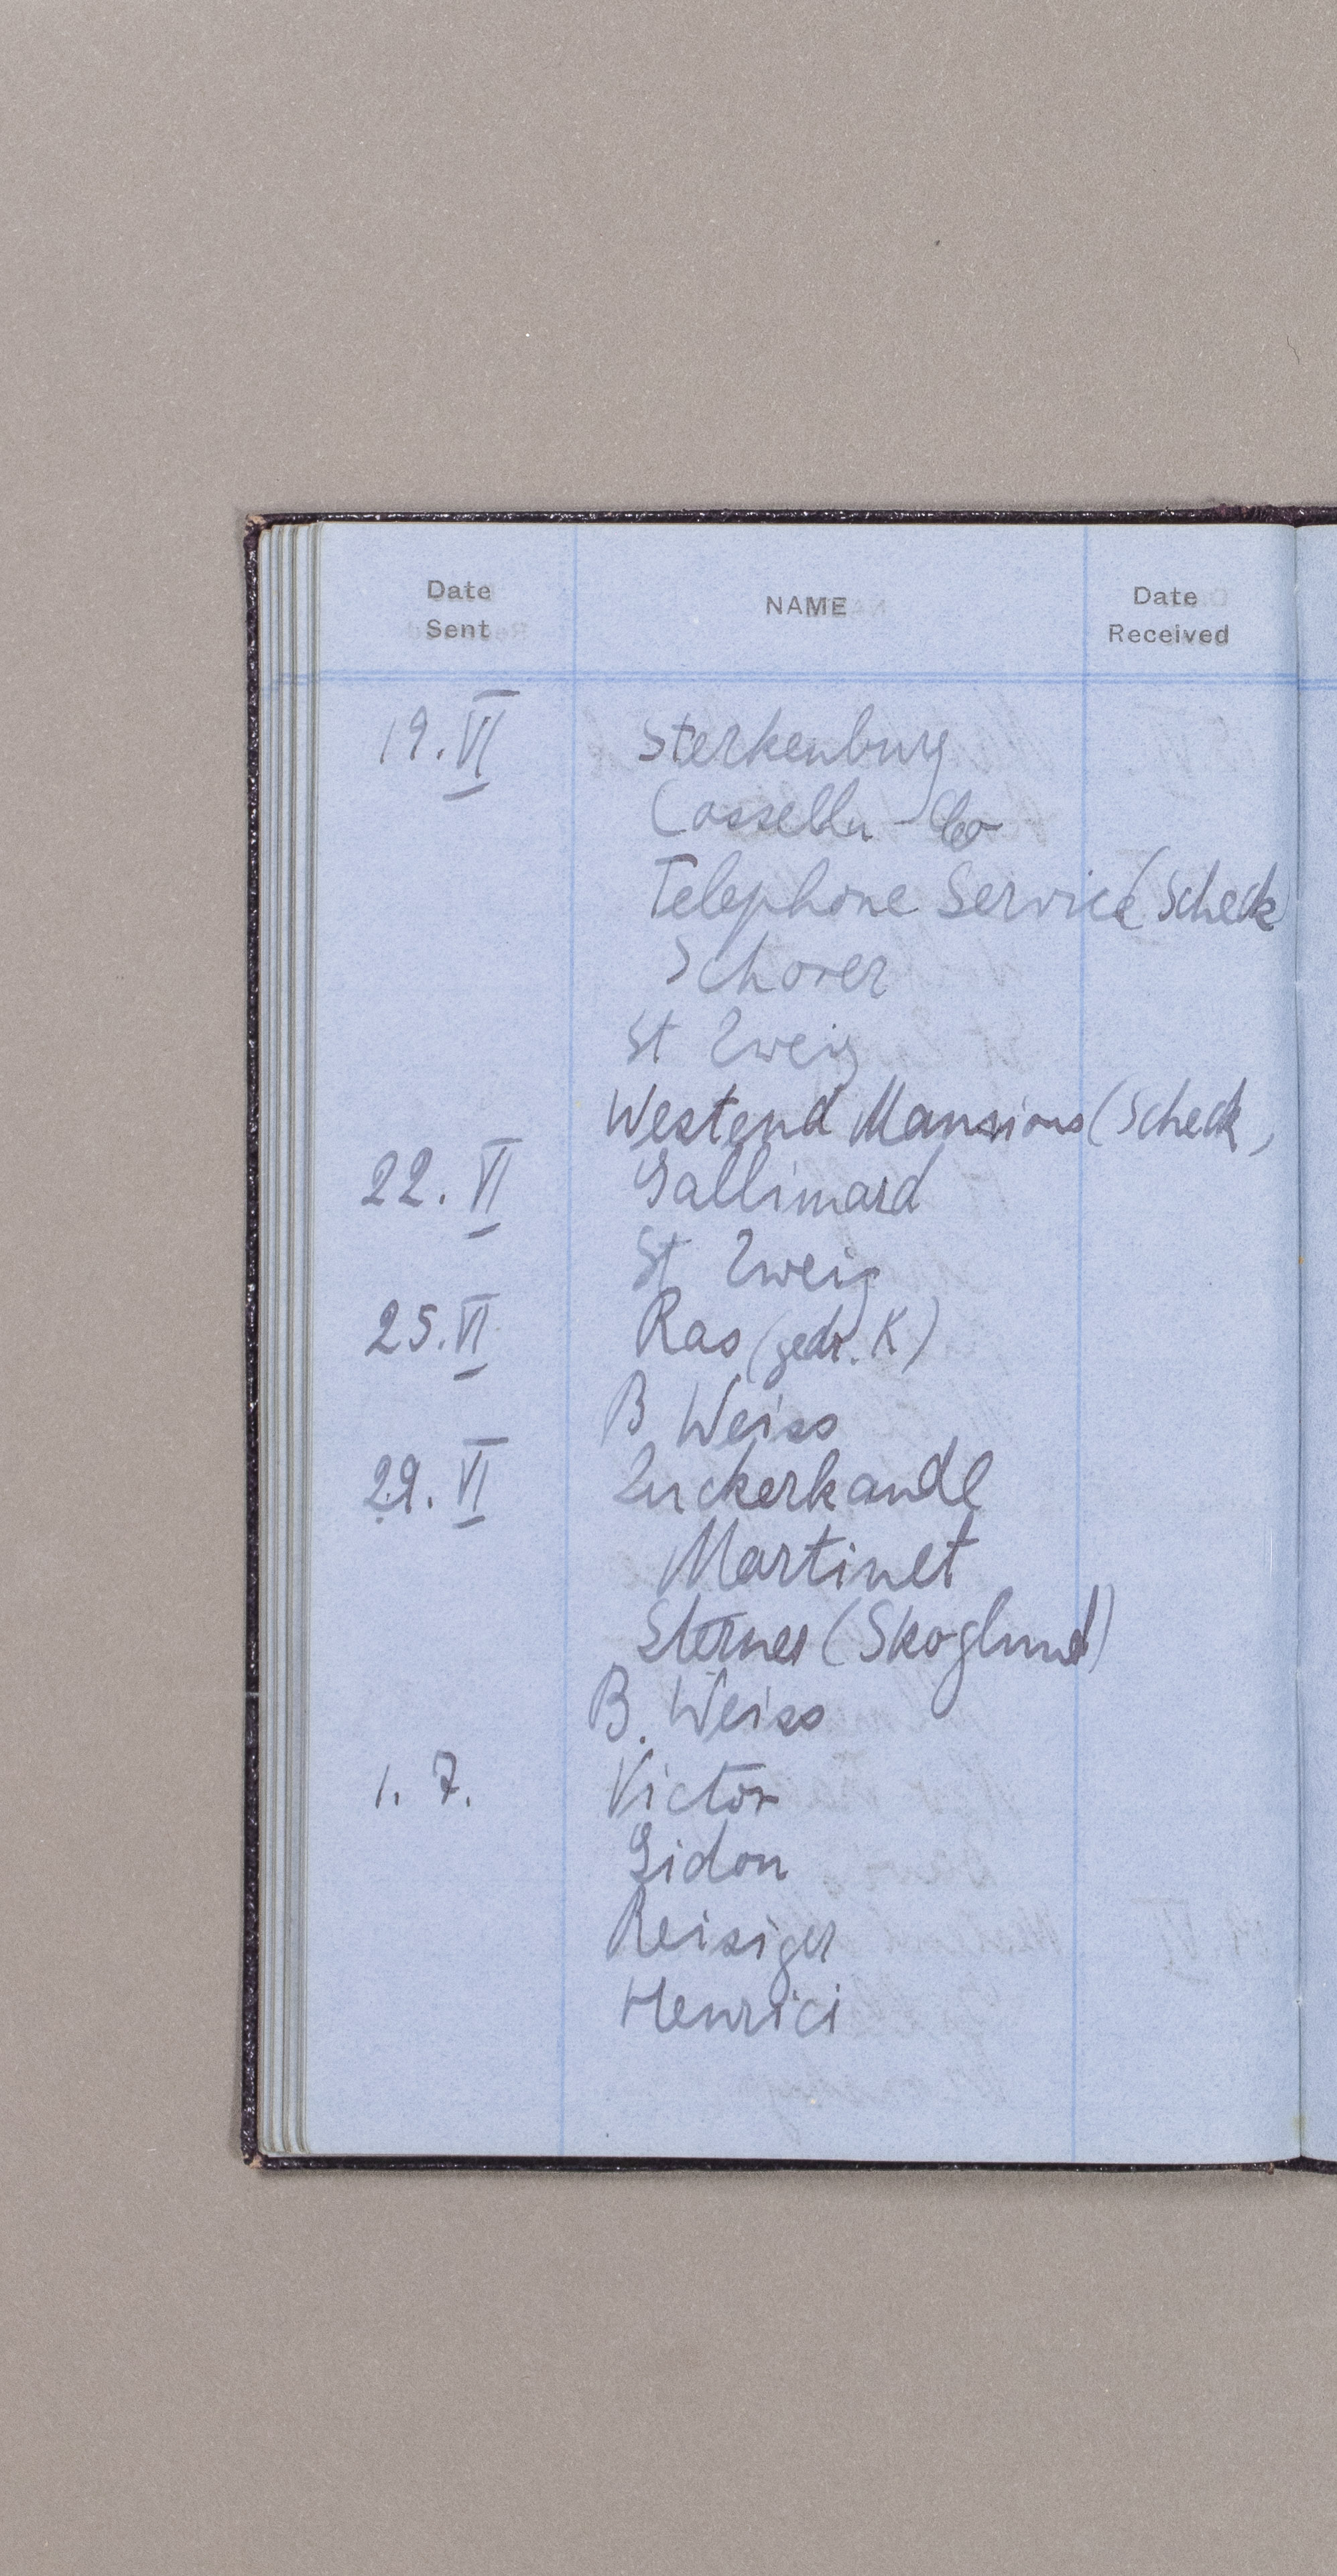 Date Sent NAME Date Received
19. VI Sterkenburg
Cassella - Co
Telephone Service (Scheck
Schorer
St Zweig
Westend Mansions (Scheck)
22. VI Gallimard
St Zweig
25. VI Ras (gedr. K)
B Weiss
29. VI Zuckerkandl
Martinet
Sterner (Skoglund)
B. Weiss
1. 7. Victor
Gidon
Reisiger
Henrici